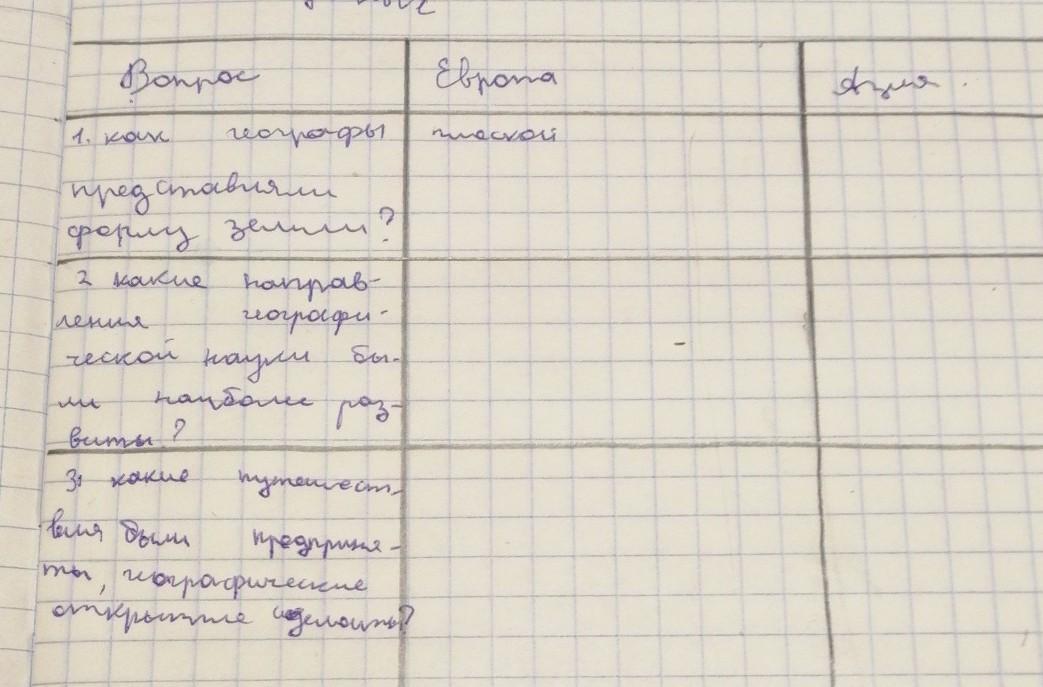 Вопрос Европа Азия.
1. как географы плоской
представляли
форму земли?
2 какие направ-
ления географи-
ческой науки бы-
ли наиболее раз-
виты?
3, какие путешест-
вия были предприня-
ты, географические
открытие сделаны?